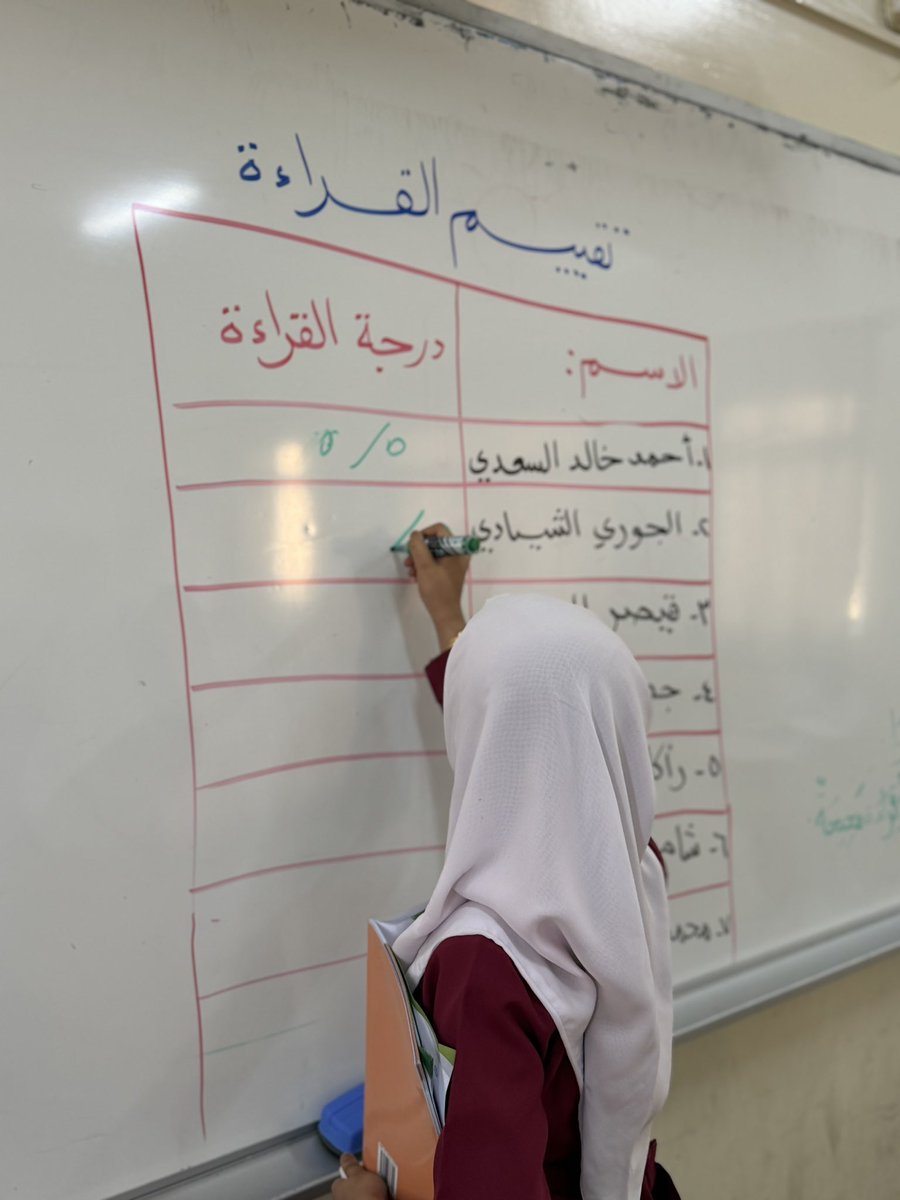 تقييم القراءة
الاسم: درجة القراءة
١- أحمد خالد السعدي ٥/٥
٢- الجوري الشيادي /
٣- قيصر
٤-
٥-
٦-
٧-